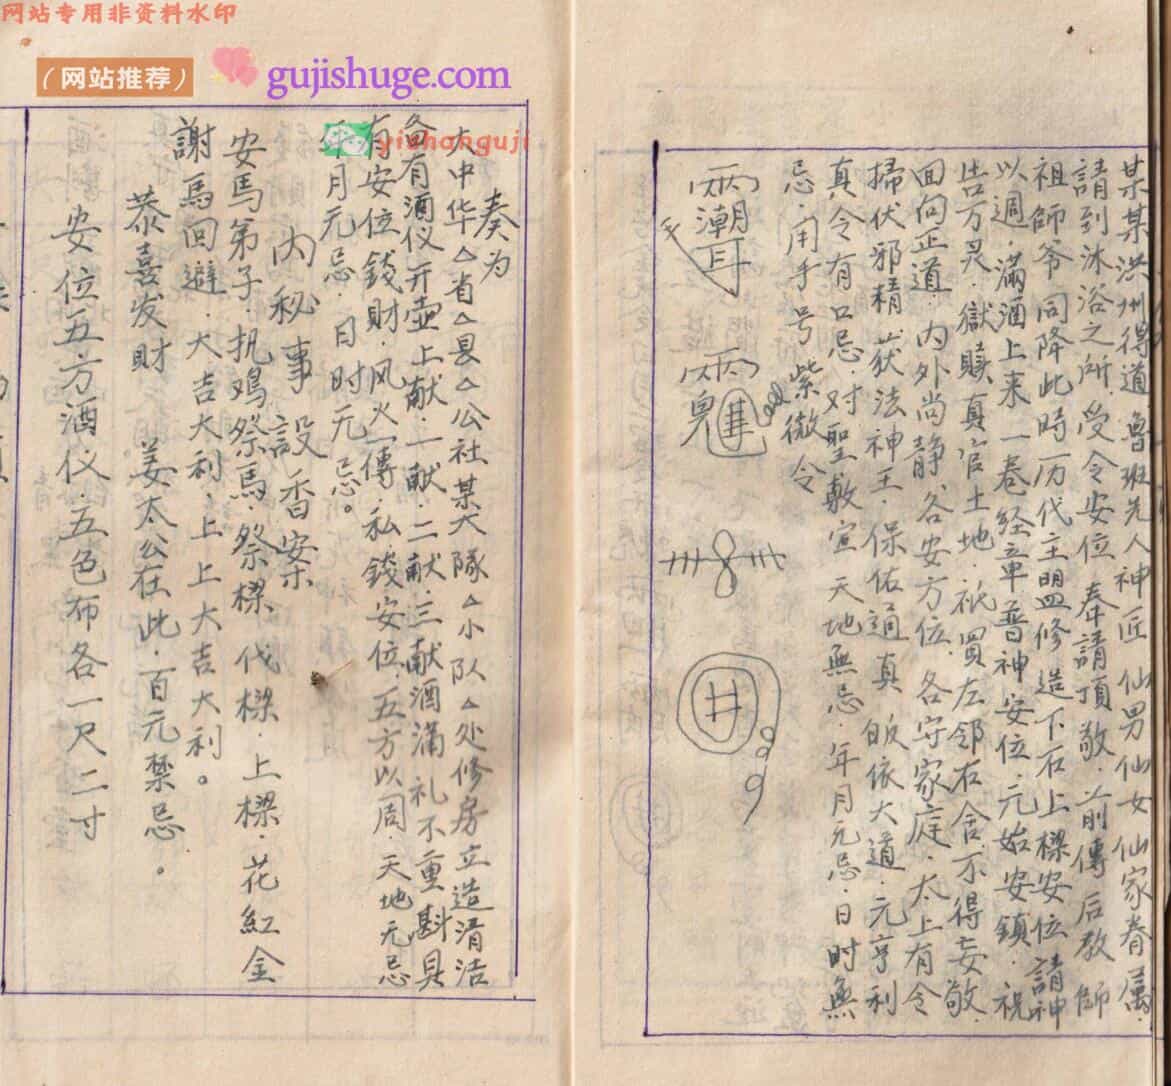 网站专用非资料水印
（网站推荐）
gujishuge.com
yishanguji
某某洪州得道魯班先人神匠仙男仙女仙家眷属．
請到沐浴之所．受令安位．奉請頂敬．前傳后教師
祖師爷同降此時历代主盟修造下石上樑安位請神
以週．滿酒上来一卷经章．普神安位．元始安鎮．祝
告万灵．嶽瀆真官土地．祇霊左邻右舍．不得妄敬．
回向正道．内外尚静．各安方位．各守家庭．太上有令
掃伏邪精．获法神王．保佑通真．皈依大道．元亨利
真．令有口忌．对聖敕宣．天地無忌．年月元忌．日時無
忌．用手号紫微令
奏为
大中华△省△县△公社某大隊△小队△处修房立造清洁
备有酒仪开壶上献．一献．二献．三献酒满．礼不重斟具
有安位錢財．风火一傳．私錢安位．五方以周．天地元忌
年月元忌．日时元忌。
内秘事設香案
安馬弟子．执鸡祭馬．祭樑．代樑．上樑．花紅金
謝馬回避．大吉大利．上上大吉大利。
恭喜发財 姜太公在此．百元禁忌。
安位五方酒仪．五色布各一尺二寸